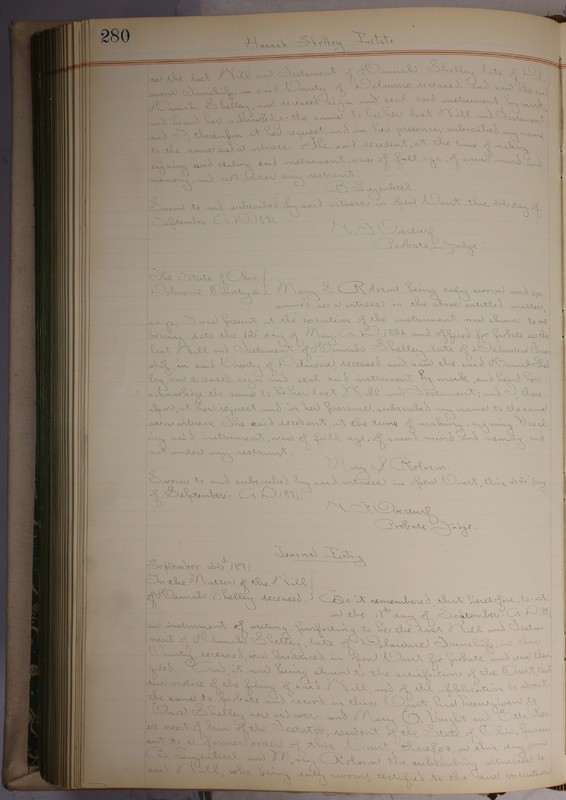 280
Hannah Shelley Estate
as the last Will and Testament of Hannah Shelley, late of
Township, in said County of Delaware deceased and saw the said
Hannah Shelley, now deceased sign and seal said instrument by mark,
and heard her acknowledge the same to be her last Will and Testament
and I, therefore at her request, and in her presence, subscribed my name
to the same as a witness. The said decedent, at the time of making
signing and sealing said instrument, was of full age, of sound mind and
memory and not under any restraint.
Sworn to and subscribed by said witness in Open Court, this day of
September A.D. 1891.
Probate Judge.
The State of Ohio
Delaware County ss
Mary being duly sworn and
as a witness in the above entitled matter,
says, I was present at the execution of the instrument now shown to me
bearing date the day of May A.D. and offered for probate as the
last Will and Testament of Hannah Shelley, late of Delaware Town
ship in said County of Delaware deceased and saw the said Hannah Shel
ley now deceased sign and seal said instrument by mark, and heard her
acknowledge the same to be her last Will and Testament; and I there
fore, at her request and in her presence, subscribed my name to the same
as a witness. The said decedent at the time of making, signing and seal
ing said instrument, was of full age, of sound mind and memory and
not under any restraint.
Mary
Sworn to and subscribed by said witness in Open Court, this day
of September A.D. 1891.
Probate Judge.
Journal Entry
September 1891
In the Matter of the Will
of Hannah Shelley deceased
Be it remembered, that heretofore, to wit
on the day of September A.D. 1891
an instrument of writing purporting to be the last Will and Testa
ment of Hannah Shelley, late of Delaware Township, in this
County deceased, was produced in Open Court for probate and was then
filed. And, it now being shown to the satisfaction of the Court that
due notice of the filing of said Will and of the application to admit
the same to probate and record in this Court had been given to
Shelley and Mary
next of kin of the Testator, resident of the State of Ohio, pursu
ant to a former order of this Court, therefore, on this day came
and Mary the subscribing witnesses to
said Will, who being duly sworn, testified to the due execution